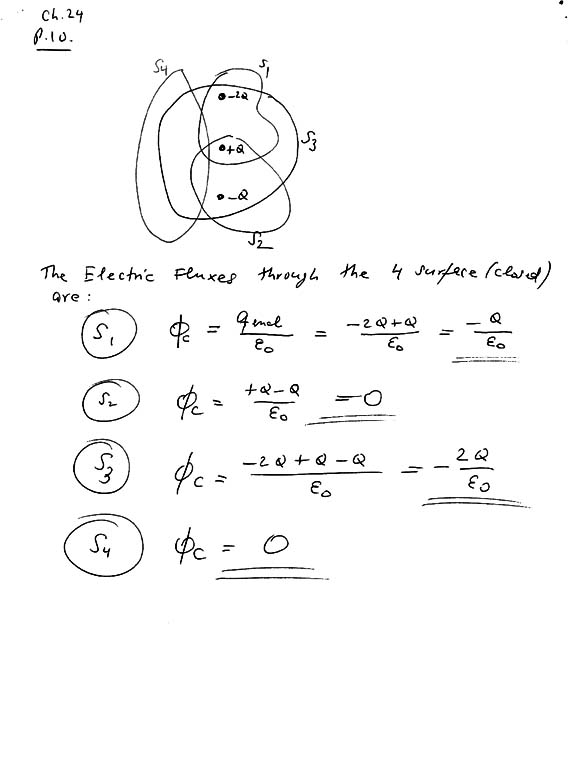 Ch.24
P.10.
S4
S1
-2Q
S3
+Q
-Q
S2
The Electric Fluxes through the 4 surface (closed)
are:
S1 ϕc = qencl/ε0 = -2Q+Q/ε0 = -Q/ε0
S2 ϕc = +Q-Q/ε0 = 0
S3 ϕc = -2Q+Q-Q/ε0 = -2Q/ε0
S4 ϕc = 0